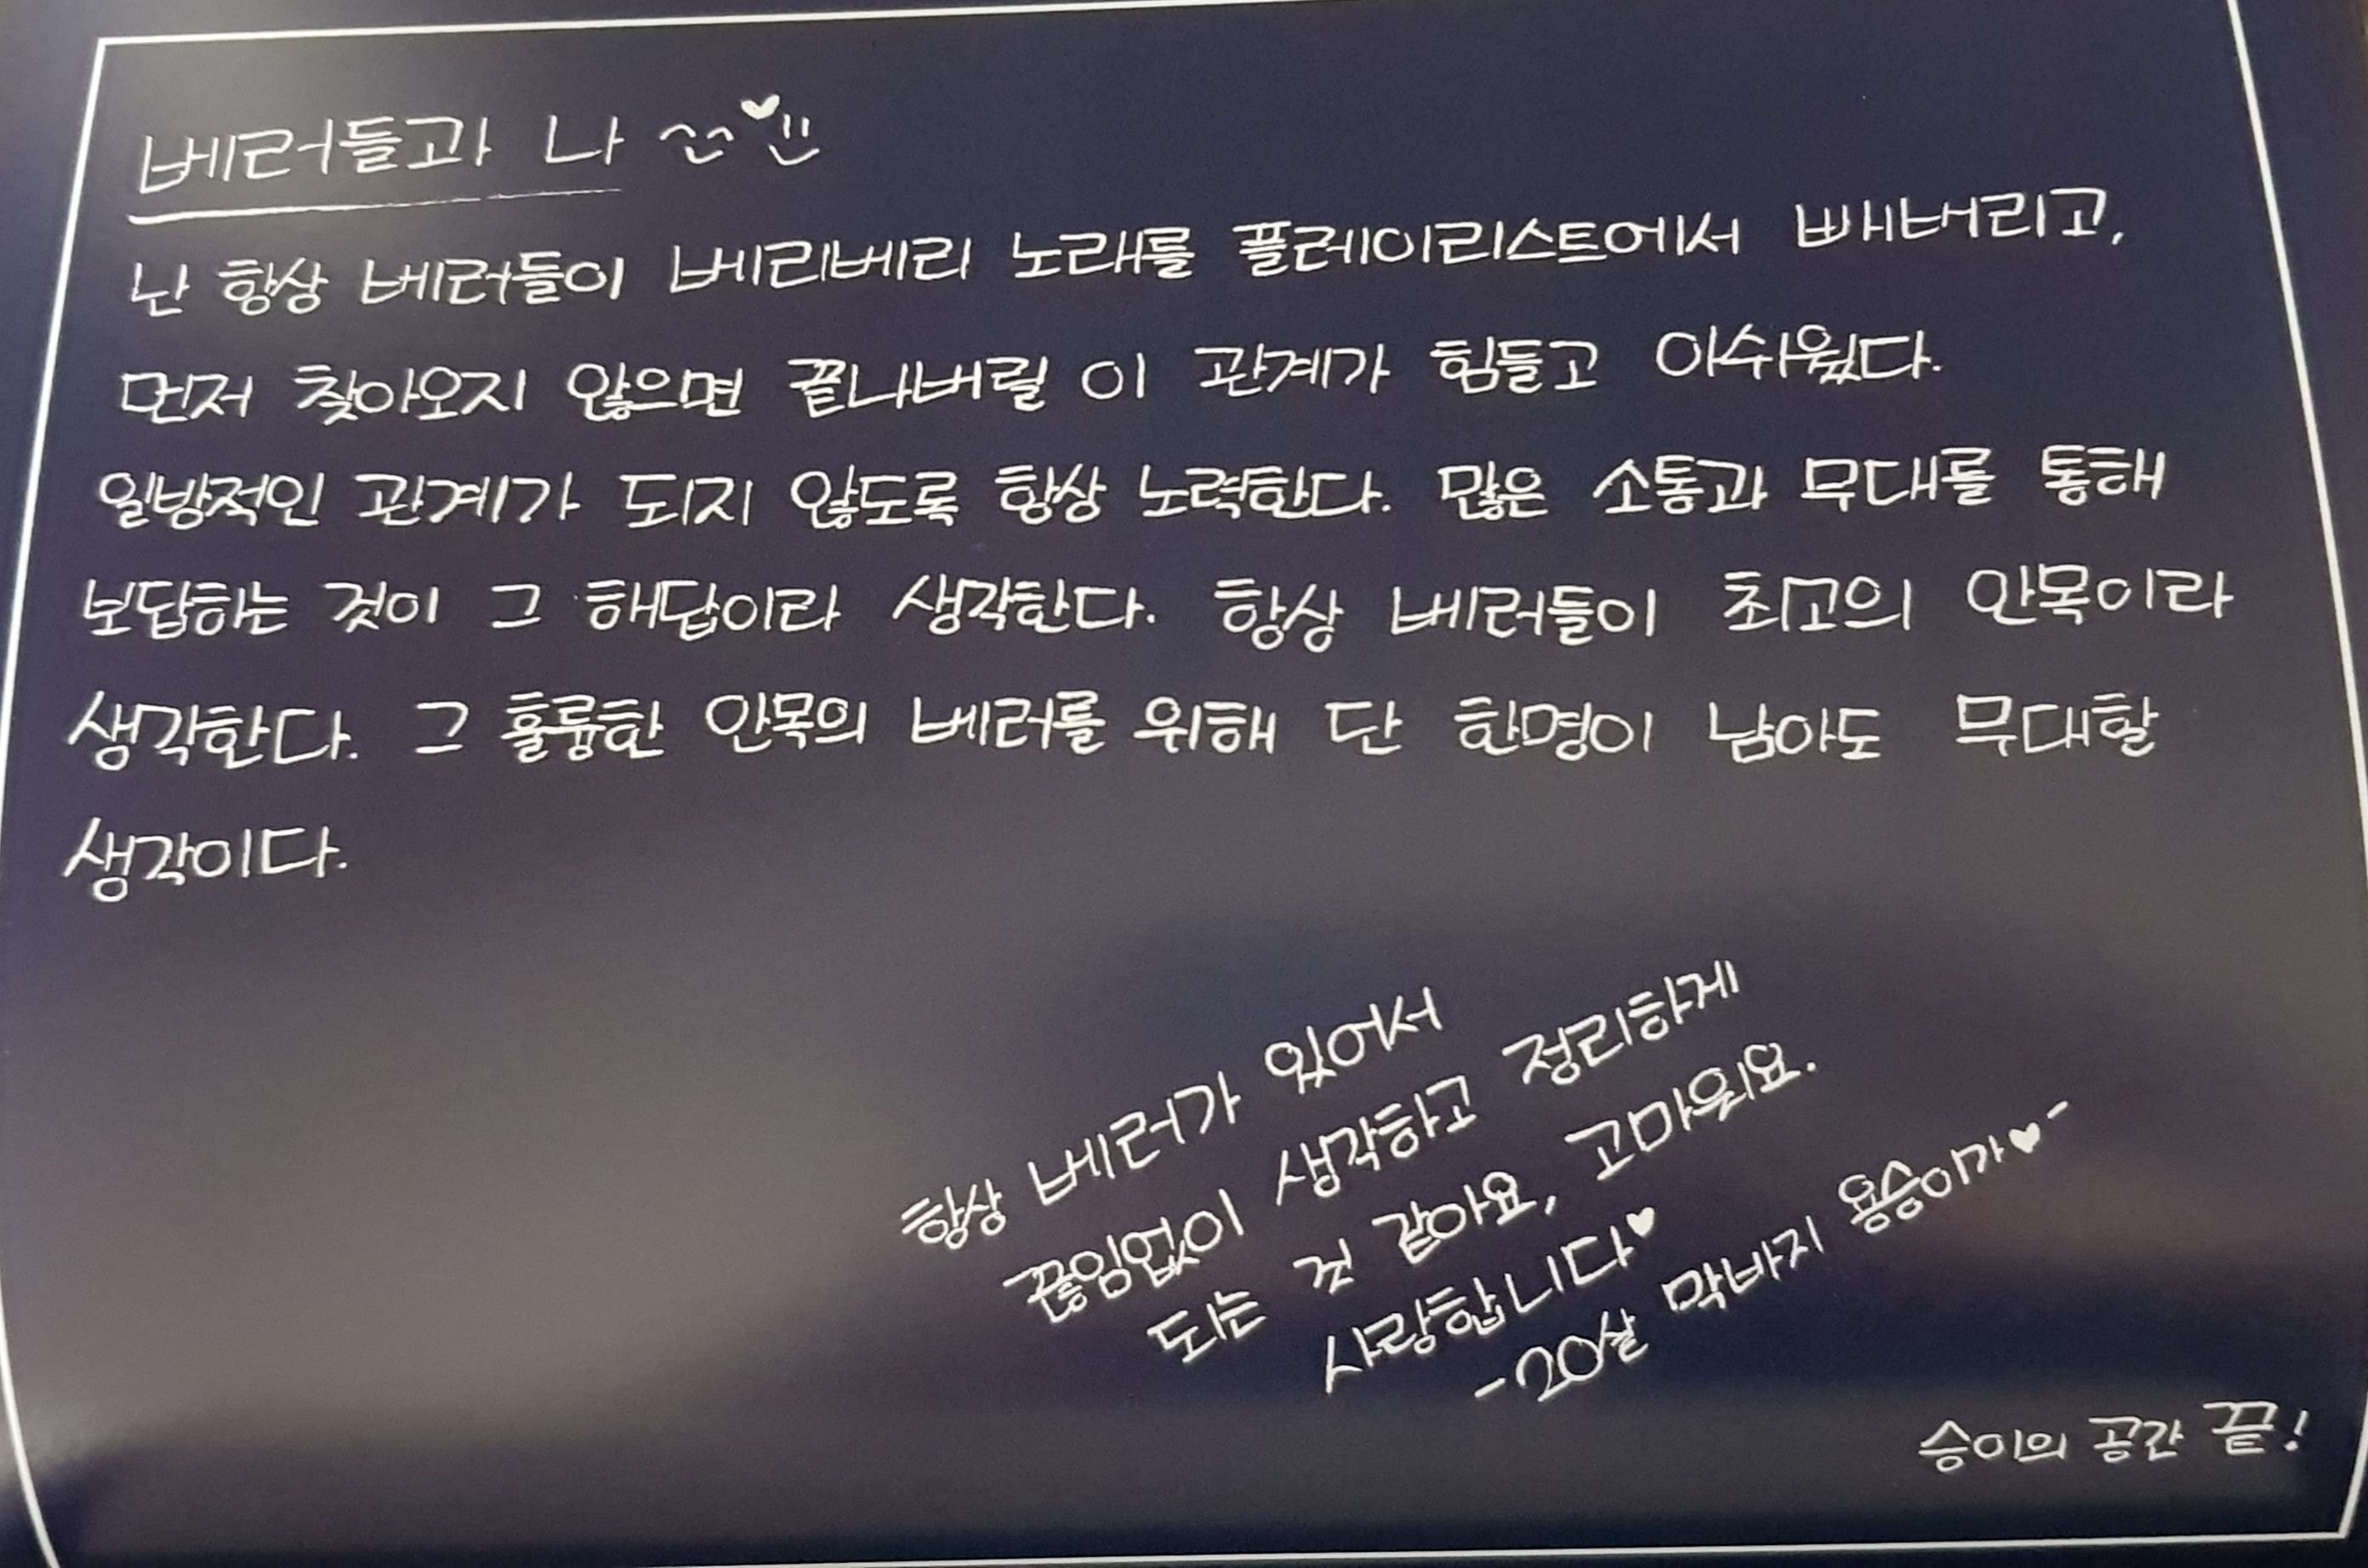 베러들과 나
난 항상 베러들이 베리베리 노래를 플레이리스트에서 빼버리고,
먼저 찾아오지 않으면 끝나버릴 이 관계가 힘들고 아쉬웠다.
일방적인 관계가 되지 않도록 항상 노력한다. 많은 소통과 무대를 통해
보답하는 것이 그 해답이라 생각한다. 항상 베러들이 최고의 안목이라
생각한다. 그 훌륭한 안목의 베러를 위해 단 한명이 남아도 무대할
생각이다.
항상 베러가 있어서
끊임없이 생각하고 정리하게
되는 것 같아요, 고마워요.
사랑합니다♥
-20살 막바지 용승이가♥-
승이의 공간 끝!